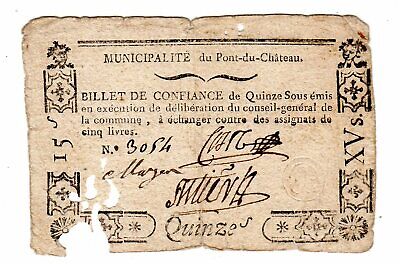 MUNICIPALITÉ du Pont-du-Château.
BILLET DE CONFIANCE de Quinze Sous émis
en exécution de délibération du conseil-général de
la commune, à échanger contre des assignats de
cinq livres.
N.º 3054
Quinzeˢ
15ˢ
XVs.